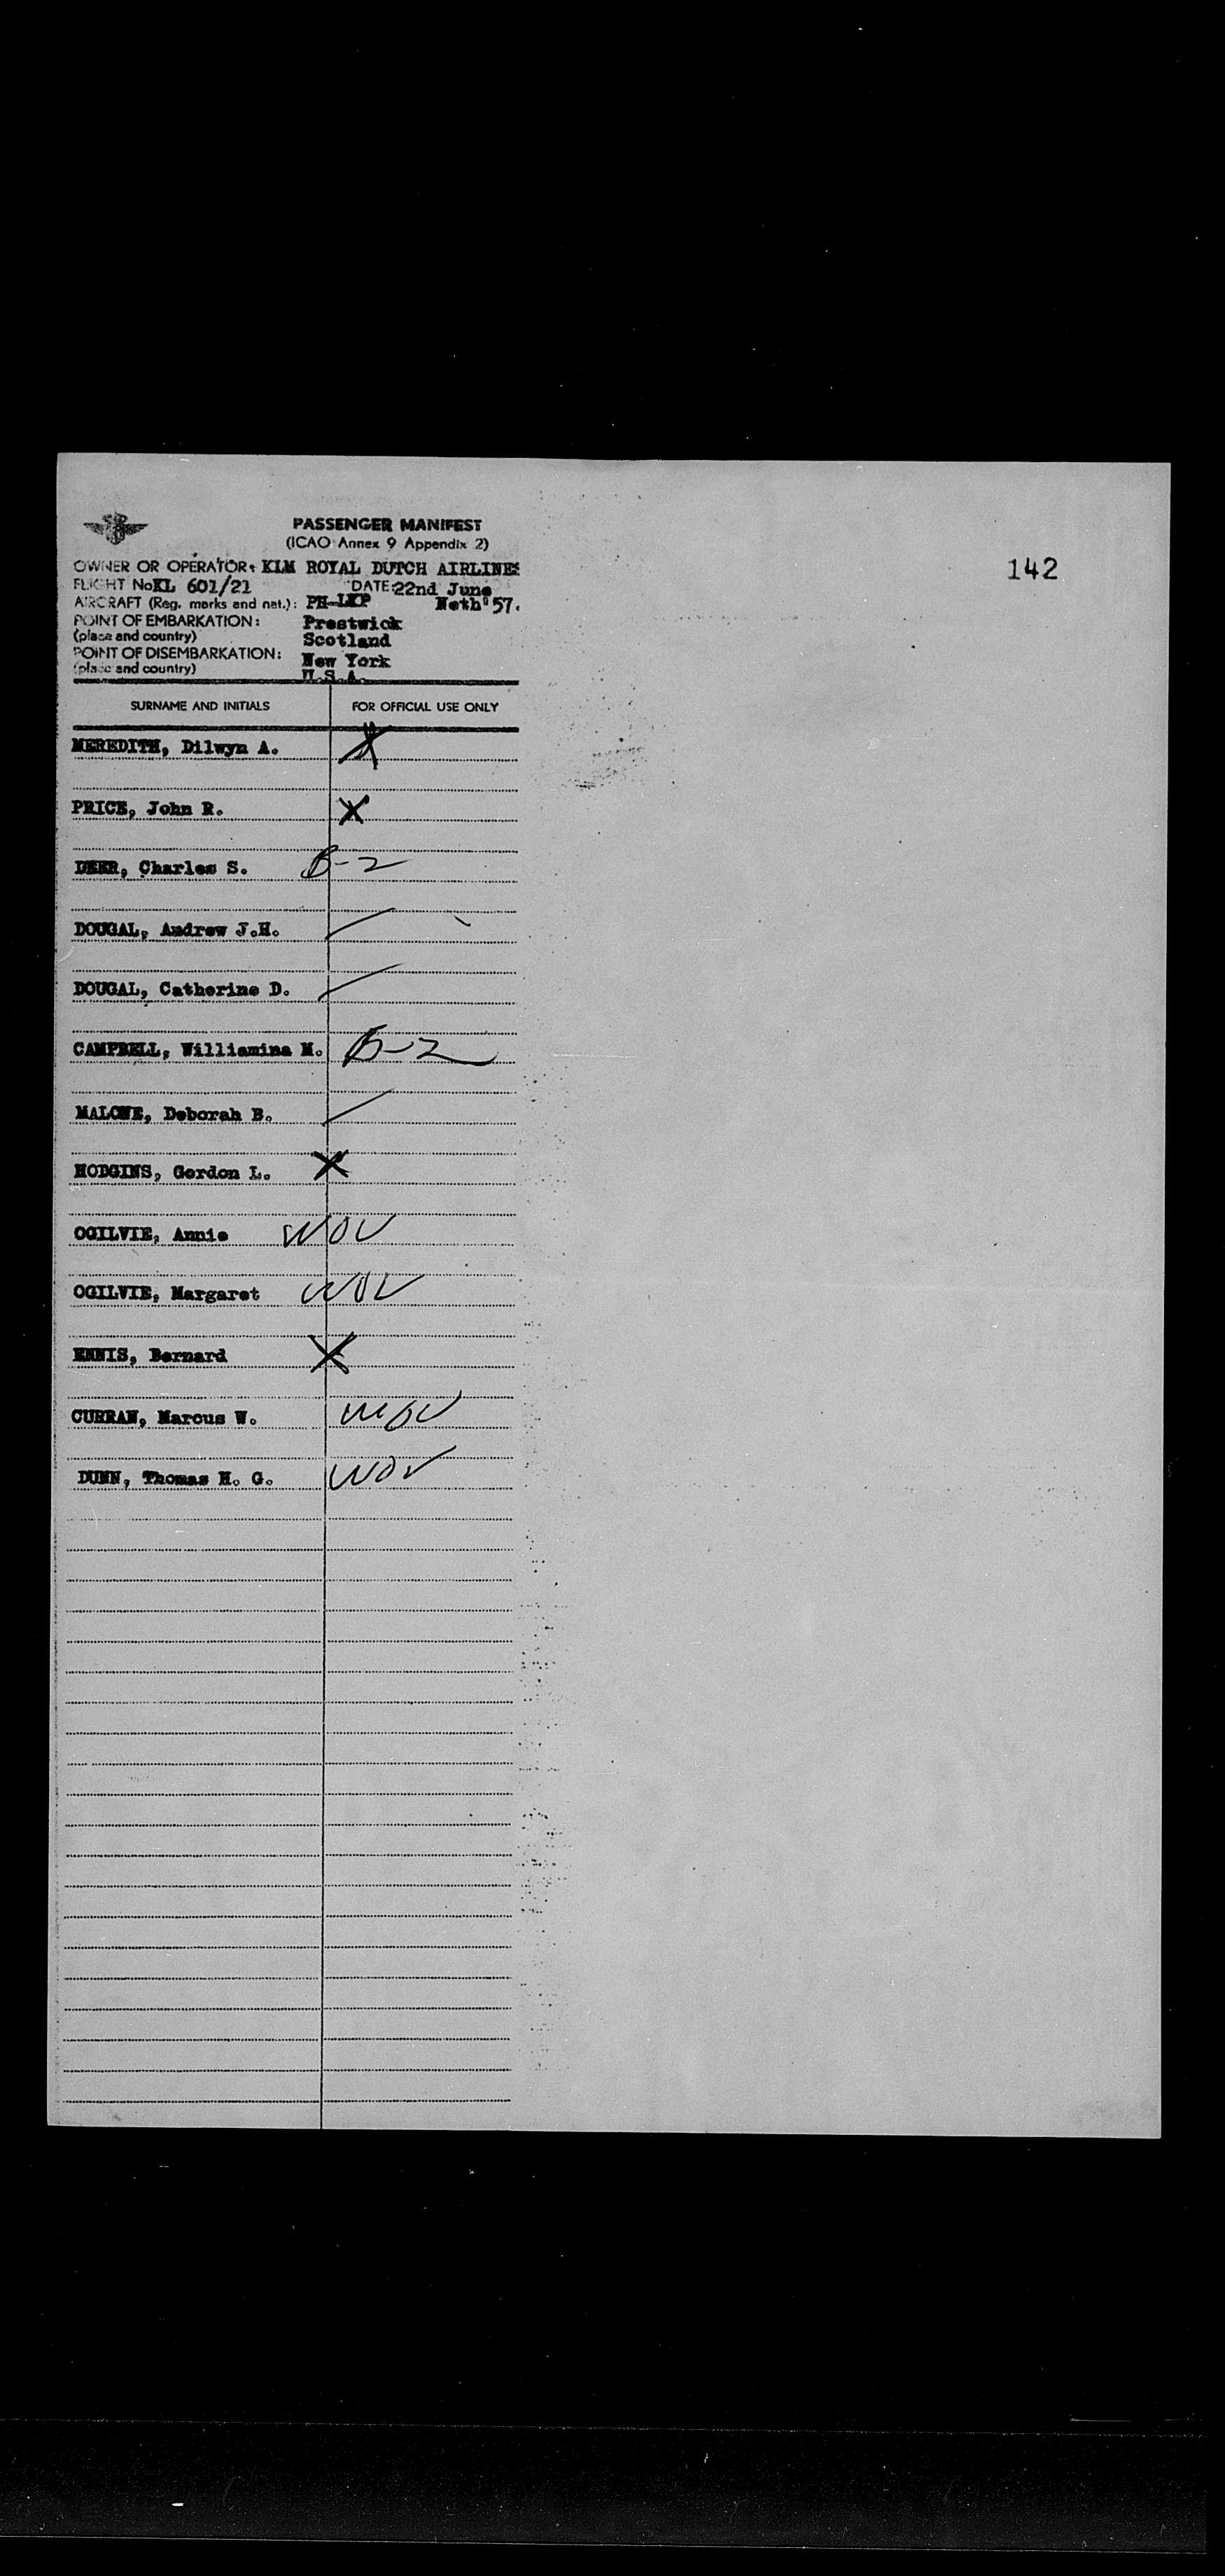 PASSENGER MANIFEST
(ICAO Annex 9 Appendix 2)
142
OWNER OR OPERATOR: KLM ROYAL DUTCH AIRLINES
FLIGHT No KL 601/21 DATE: 22nd June
AIRCRAFT (Reg. marks and nat.): PH-LKP Neth' 57.
POINT OF EMBARKATION: Prestwick
(place and country) Scotland
POINT OF DISEMBARKATION: New York
(place and country) U.S.A.
SURNAME AND INITIALS FOR OFFICIAL USE ONLY
MEREDITH, Dilwyn A. X
PRICE, John R. X
DEER, Charles S. B-2
DOUGAL, Andrew J.H.
DOUGAL, Catherine D.
CAMPBELL, Williamina M. B-2
MALONE, Deborah B.
HODGINS, Gordon L. X
OGILVIE, Annie WOV
OGILVIE, Margaret WOV
ENNIS, Bernard X
CURRAN, Marcus W. WOV
DUNN, Thomas H. G. WOV